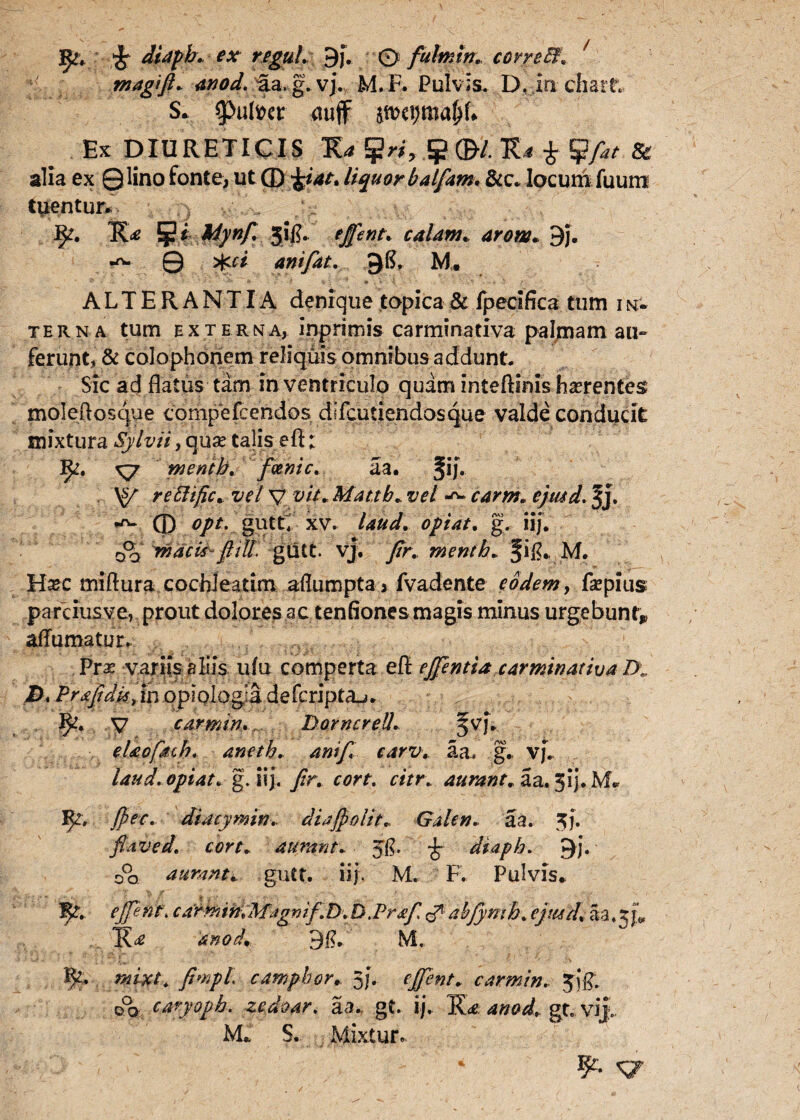 ℞. ♁ diaph. ex regul. ℈j. ☉ fulmin. correct.
magiſt. anod. āā. g. vj. M. F. Pulvis. D. in chart.
S. Pulver auff zweymahl.
Ex DIURETICIS
alia ex lino fonte, ut liquor balſam. &c. locum ſuum
tuentur.
℞. Mynſ. ʒiß. eſſent. calam. arom. ℈j.
aniſat. ℈ß. M.
ALTERANTIA denique topica & ſpecifica tum IN-
TERNA tum EXTERNA, inprimis carminativa palmam au-
ferunt, & colophonem reliquis omnibus addunt.
Sic ad flatus tàm in ventriculo quàm inteſtinis hærentes
moleſtosque compeſcendos diſcutiendosque valdè conducit
mixtura Sylvii, quæ talis eſt:
℞. 🜄 menth. fœnic. āā. ℥ij.
rectific. vel vit. Matth. vel carm. ejusd. ℥j.
opt. gutt. xv. laud. opiat. g. iij.
macis ſtill. gutt. vj. ſir. menth. ℥iß. M.
Hæc miſtura cochleatim aſſumpta, ſvadente eòdem, ſæpius
parciusve, prout dolores ac tenſiones magis minus urgebunt,
aſſumatur.
Præ variis aliis uſu comperta eſt eſſentia carminativa D.
D. Præſidis, in opiologia deſcripta.
℞. carmin. Dorncrell. ℥vj.
elæoſach. aneth. aniſ. carv. āā. g. vj.
laud. opiat. g. iij. ſir. cort. citr. aurant. āā. ʒij. M.
℞. ſpec. diacymin. diaſpolit. Galen. āā. ʒj.
flaved. cort. aurant. ʒß. ♁ diaph. ℈j.
aurant. gutt. iij. M. F. Pulvis.
℞. eſſent. carmin. Magnif. D. D. Præſ. & abſynth. ejusd. āā. ʒj.
anod. ℈ß. M.
℞. mixt. ſimpl. camphor. ʒj. eſſent. carmin. ʒiß.
caryoph. zedoar. āā. gt. ij. anod. gt. vij.
M. S. Mixtur.
℞. 🜄